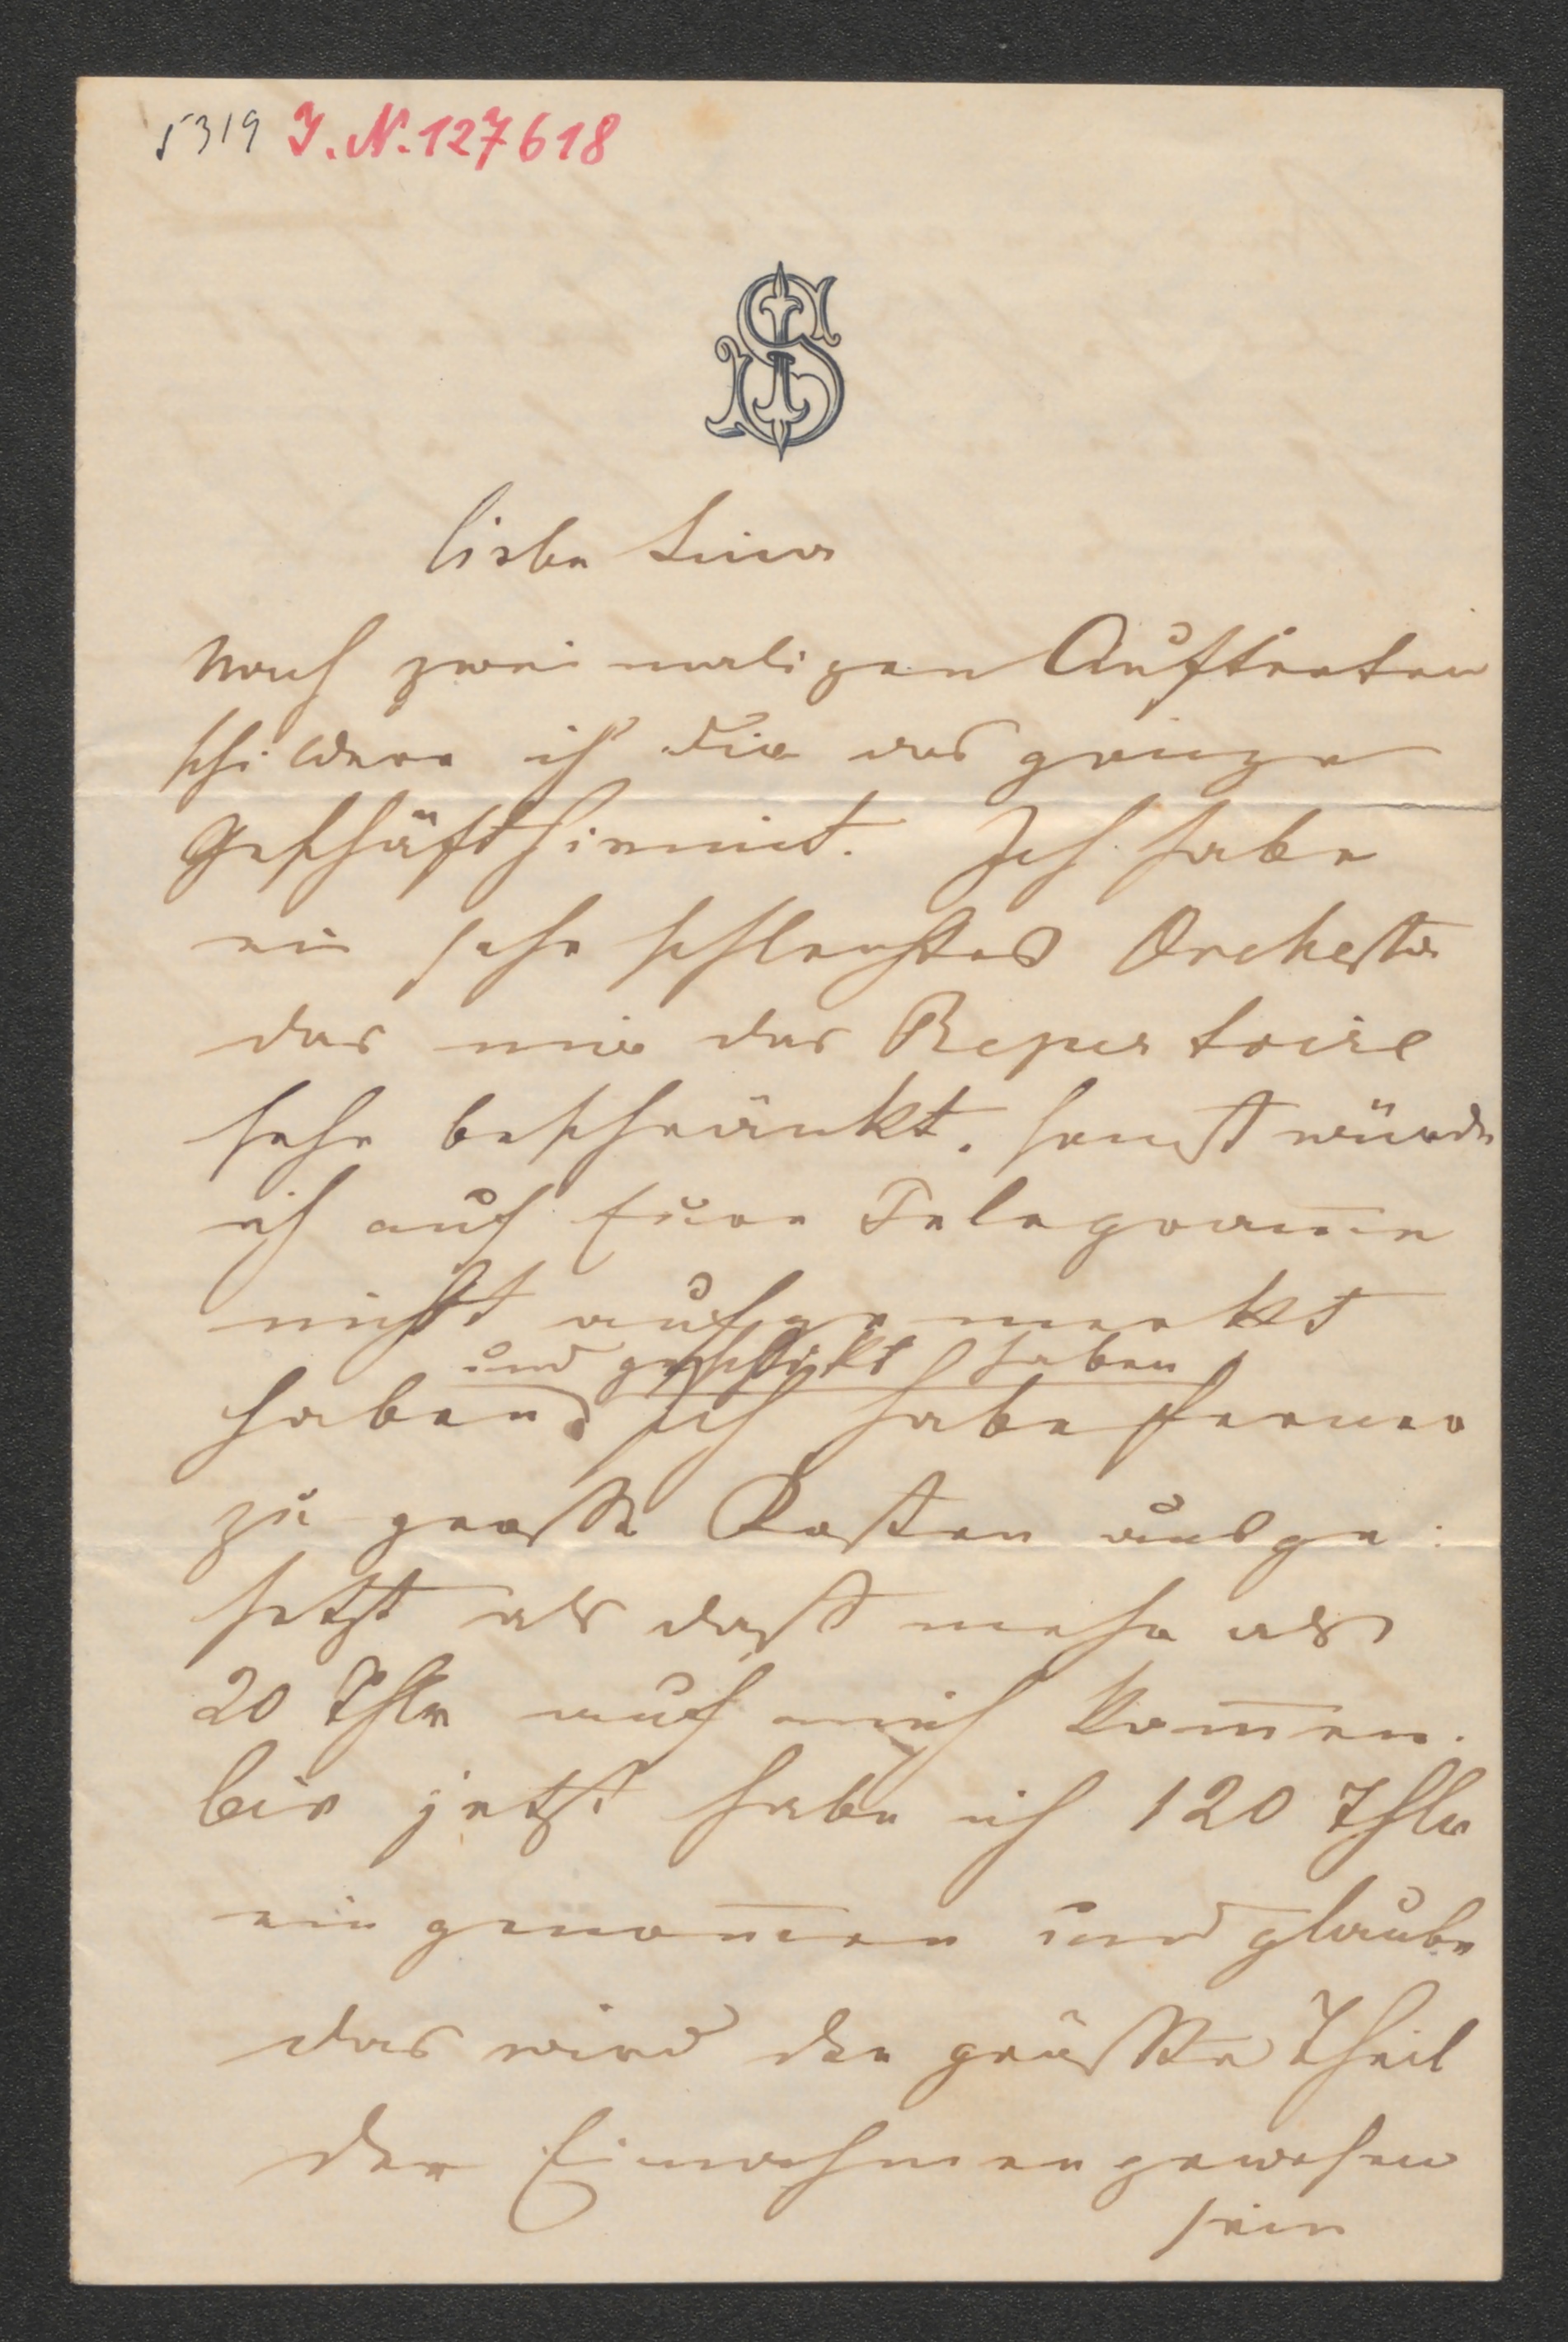 5319 I. N. 127618
JS
liebe Lina
Nach zweimaligen Auftreten
schildere ich Dir das ganze
Geschäft hiermit. Ich habe
ein sehr schlechtes Orchester
das mir das Repertoire
sehr beschränkt. sonst würde
ich auf Eure Telegram̅e
nicht aufgemerkt
und geschickt haben
haben. Ich habe ferner
zu große Kosten ausge:
setzt als daß mehr als
20 Thlr auf mich kom̅en.
bis jetzt habe ich 120 Thlr
eingenom̅en und glaube
das wird der größte Theil
der Einnahmen gewesen
sein